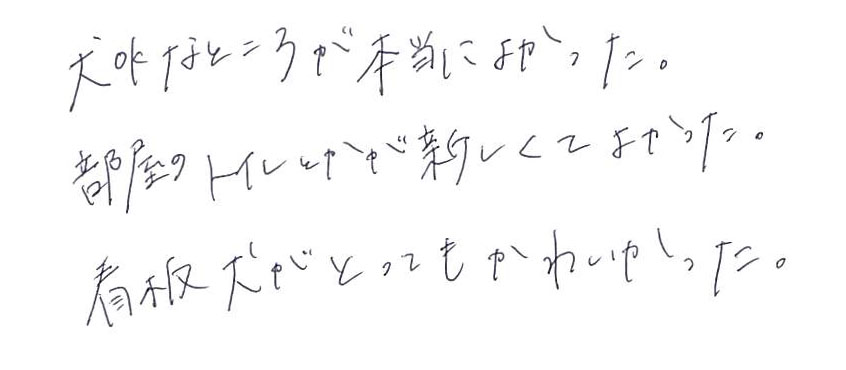 犬OKなところが本当によかった。
部屋のトイレとかが新しくてよかった。
看板犬がとってもかわいかった。